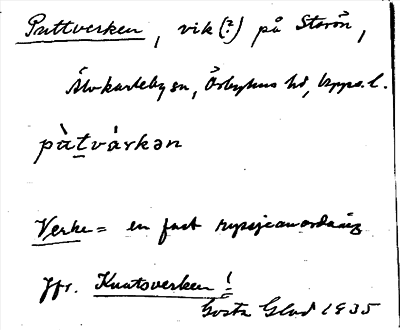 Puttverken, vik (?) på Storön,
Älvkarleby sn, Örbyhus hd, Upps. l.
pàt̲várkən
Verke = en fast ryssjeanordning
Jfr. Knutsverken!
Gösta Glad 1935